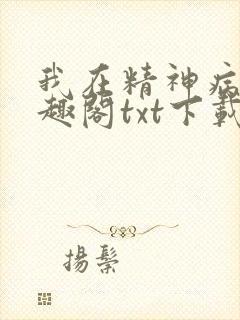 我在精神病
趣阁txt下载
揚鬃